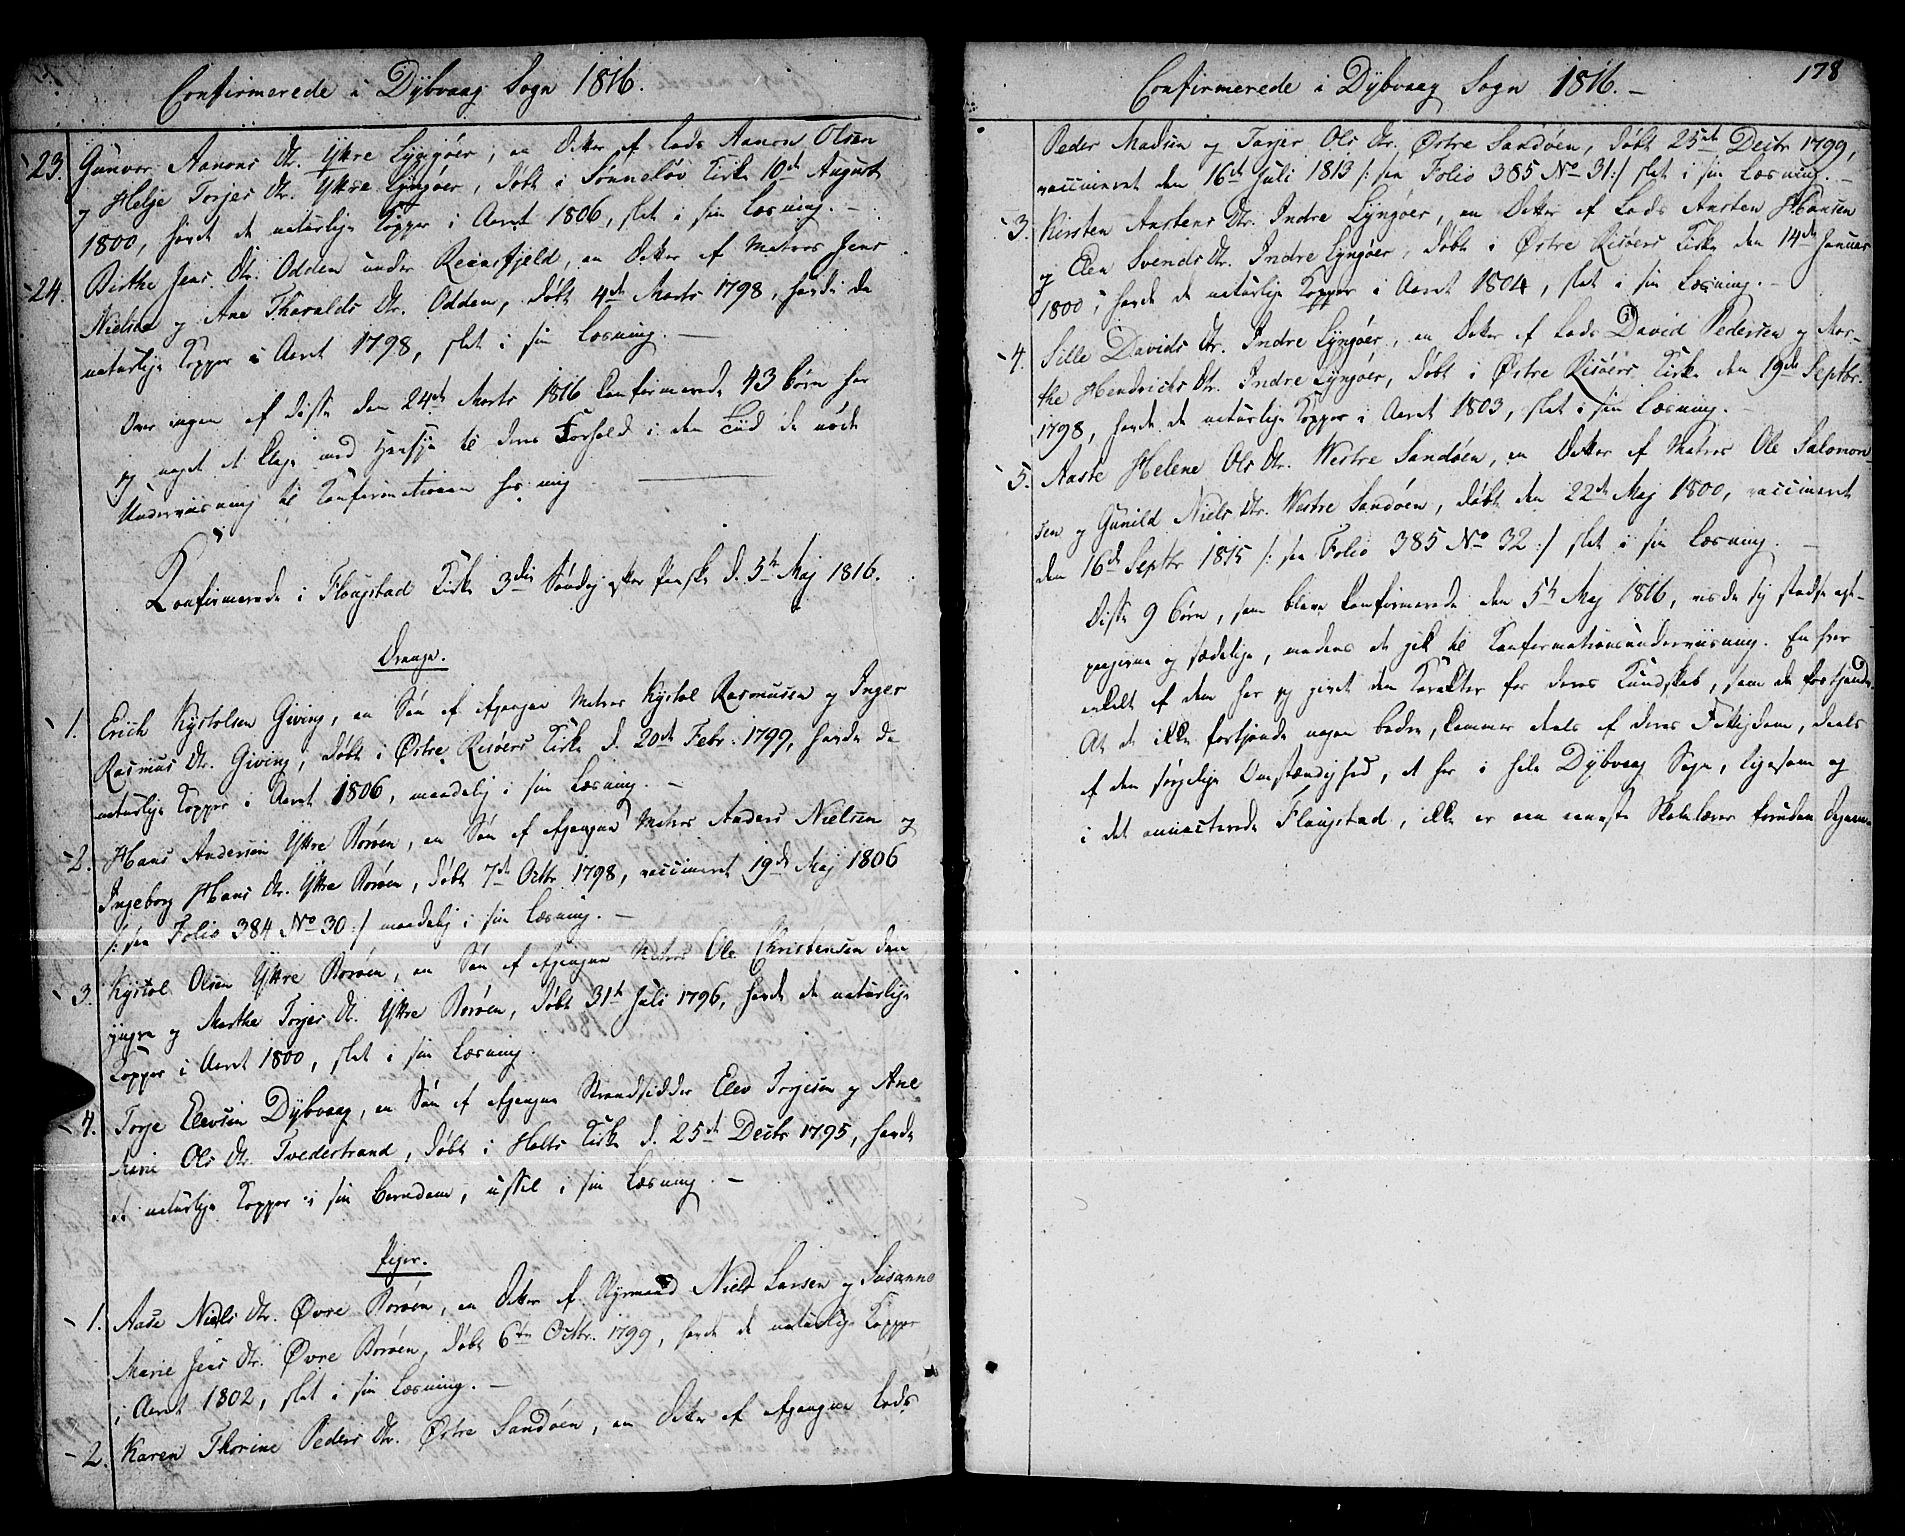 Confirmerede i Dybvaag Sogn 1816.
23. Gunvor Aanons Dtr. Yttre Lyngöer, en Datter af Lods Aanon Olsen
og Helje Torjes Dtr. Yttre Lyngöer, döbt i Sönneløv Kirke 10de August
1800, havde de naturlige Kopper i Aaret 1806, slet i sin Læsning. –
24. Birthe Jens Dtr. Odden under Reensfjeld, en Datter af Matros Jens
Nielsen og Ane Tharalds Dtr. Odden, döbt 4de Marts 1798, havde de
naturlige Kopper i Aaret 1798, slet i sin Læsning. –
Over ingen af disse den 24de Marts 1816 Konfirmerede 43 Börn har
jeg noget at klage med Hensyn til deres Forhold i den Tiid de nöde
Underviisning til Konfirmationen hos mig
Konfirmerede i Flaugstad Kirke 3die Söndag efter Paaske d. 5te Maj 1816.
Drenge.
1. Erich Kystolsen Giving, en Sön af afgangne Matros Kystol Rasmussen og Inger
Rasmus Dtr. Giving, döbt i Østre Risöers Kirke d. 20de Febr. 1799, havde de
naturlige Kopper i Aaret 1806, maadelig i sin Læsning. –
2. Hans Andersen Yttre Boröen, en Sön af afgangne Matros Anders Nielsen og
Ingeborg Hans Dtr. Yttre Boröen, döbt 7de Octbr. 1798, vaccineret 19de Maj 1806
/: see Folio 384 No 30 :/ maadelig i sin Læsning. –
3. Kystol Olsen Yttre Boröen, en Sön af afgangne Matros Ole Christensen den
yngre og Marthe Torjes Dtr. Yttre Boröen, döbt 31te Juli 1796, havde de naturlige
Kopper i Aaret 1800, slet i sin Læsning.
4. Torje Elevsen Dybvaag, en Sön af afgangne Strandsidder Elev Torjesen og Ane
Marie Ols Dtr. Tvedestrand, döbt i Holts Kirke d. 25de Decbr 1795, havde
de naturlige Kopper i sin Barndom, ussel i sin Læsning. –
Piger.
1. Aase Niels Dtr. Øvre Boröen, en Datter af Niels Larsen og Susanne
Marie Jens Dtr. Øvre Boröen, döbt 6te Octbr. 1799, havde de naturlige Kopper
i Aaret 1802, slet i sin Læsning. –
2. Karen Thorine Peders Dtr. Østre Sandöen, en Datter af afgangne Lods
Confirmerede i Dybvaag Sogn 1816. –
178
Peder Madsen og Torjer Ols Dtr. Østre Sandöen, döbt 25de Decbr 1799,
vaccineret den 16de Juli 1813 /: see Folio 385 No 31 :/ slet i sin Læsning. –
3. Kirsten Anstens Dtr. Indre Lyngöer, en Datter af Lods Ansten Hansen
og Elen Svends Dtr. Indre Lyngöer, döbt i Østre Risöers Kirke den 14de Januar
1800, havde de naturlige Kopper i Aaret 1804, slet i sin Læsning. –
4. Sille Davids Dtr. Indre Lyngöer, en Datter af Lods David Pedersen og Mar-
the Hendrichs Dtr. Indre Lyngöer, döbt i Østre Risöers Kirke den 19de Septbr.
1798, havde de naturlige Kopper i Aaret 1803, slet i sin Læsning. –
5. Aaste Helene Ols Dtr. Westre Sandöen, en Datter af Matros Ole Salomon-
sen og Gunild Niels Dtr. Westre Sandöen, döbt den 22de Maj 1800, vaccineret
den 16de Septbr 1815 /: see Folio 385 No 32 :/ slet i sin Læsning. –
Disse 9 Börn, som bleve konfirmerede den 5te Maj 1816, viiste sig stedse agt-
paagivne og sædelige, medens de gik til Konfirmationsunderviisning. En hver
enkelt af dem har jeg givet den Karakter for deres Kundskab, som de fortjende.
At de ikke fortjende nogen bedre, kommer deels af deres Fattigdom, deels
af den sørgelige Omstændighed, at her i hele Dybvaag Sogn, ligesom og
i det annecterede Flaugstad, ikke er een eeneste Skolelærer foruden Degnen